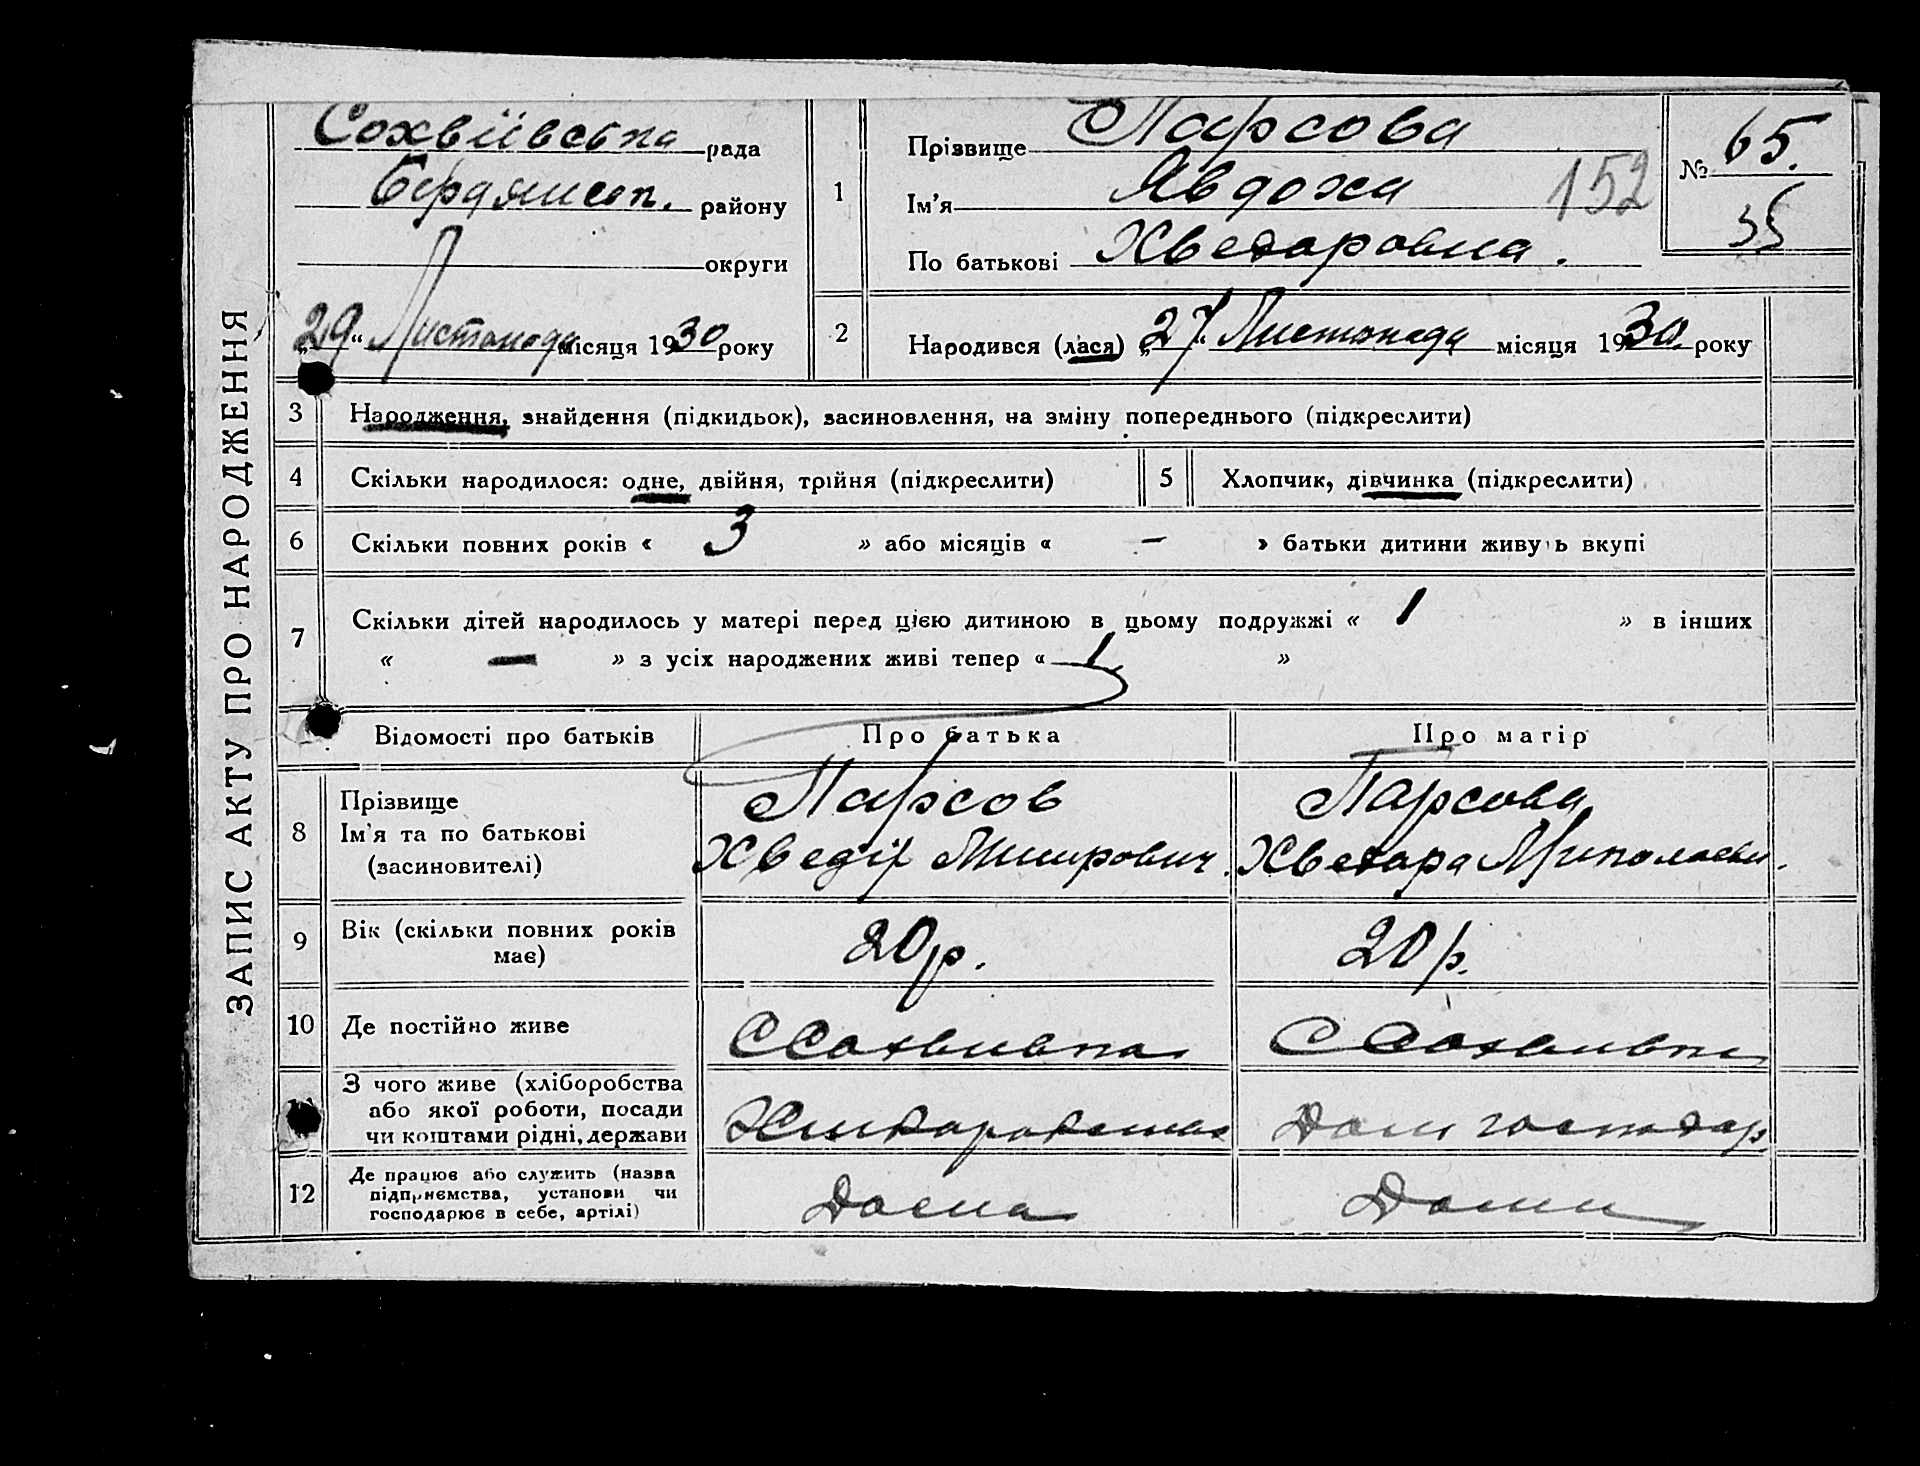 ЗАПИС АКТУ ПРО НАРОДЖЕННЯ
Сохвіївська рада
Бердянськ. району
округи
„29“ Листопада місяця 1930 року
1
Прізвище Парсова
Ім'я Явдоха
152
По батькові Хведаровна.
№ 65.
35
2
Народився (лася) „27“ Листопада місяця 1930 року
3 Народження, знайдення (підкидьок), засиновлення, на зміну попереднього (підкреслити)
4 Скільки народилося: одне, двійня, трійня (підкреслити)
5 Хлопчик, дівчинка (підкреслити)
6 Скільки повних років « 3 » або місяців « — » батьки дитини живуть вкупі
7 Скільки дітей народилось у матері перед цією дитиною в цьому подружжі « 1 » в інших
« — » з усіх народжених живі тепер « 1 »
Відомості про батьків Про батька Про матір
8 Прізвище
Ім'я та по батькові
(засиновителі)
Парсов
Хведір
Парсова
9 Вік (скільки повних років
має)
20 р.
20 р.
10 Де постійно живе
С Сохвиевка
С Сохвиевка
З чого живе (хліборобства
або якої роботи, посади
чи коштами рідні, держави
Дом господар.
12 Де працює або служить (назва
підприємства, установи чи
господарює в себе, артілі)
Дома
Дома